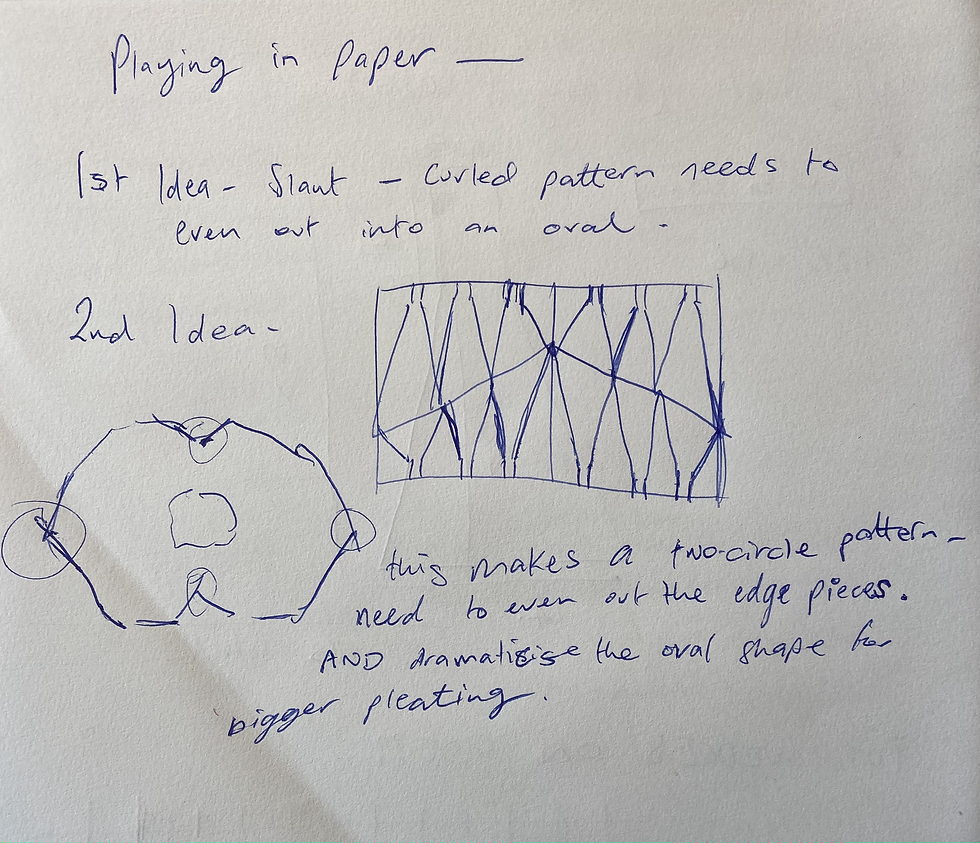 Playing in paper —
1st Idea - Slant - Curled pattern needs to
even out into an oval.
2nd Idea -
this makes a two-circle pattern -
need to even out the edge pieces.
AND dramatisise the oval shape for
bigger pleating.